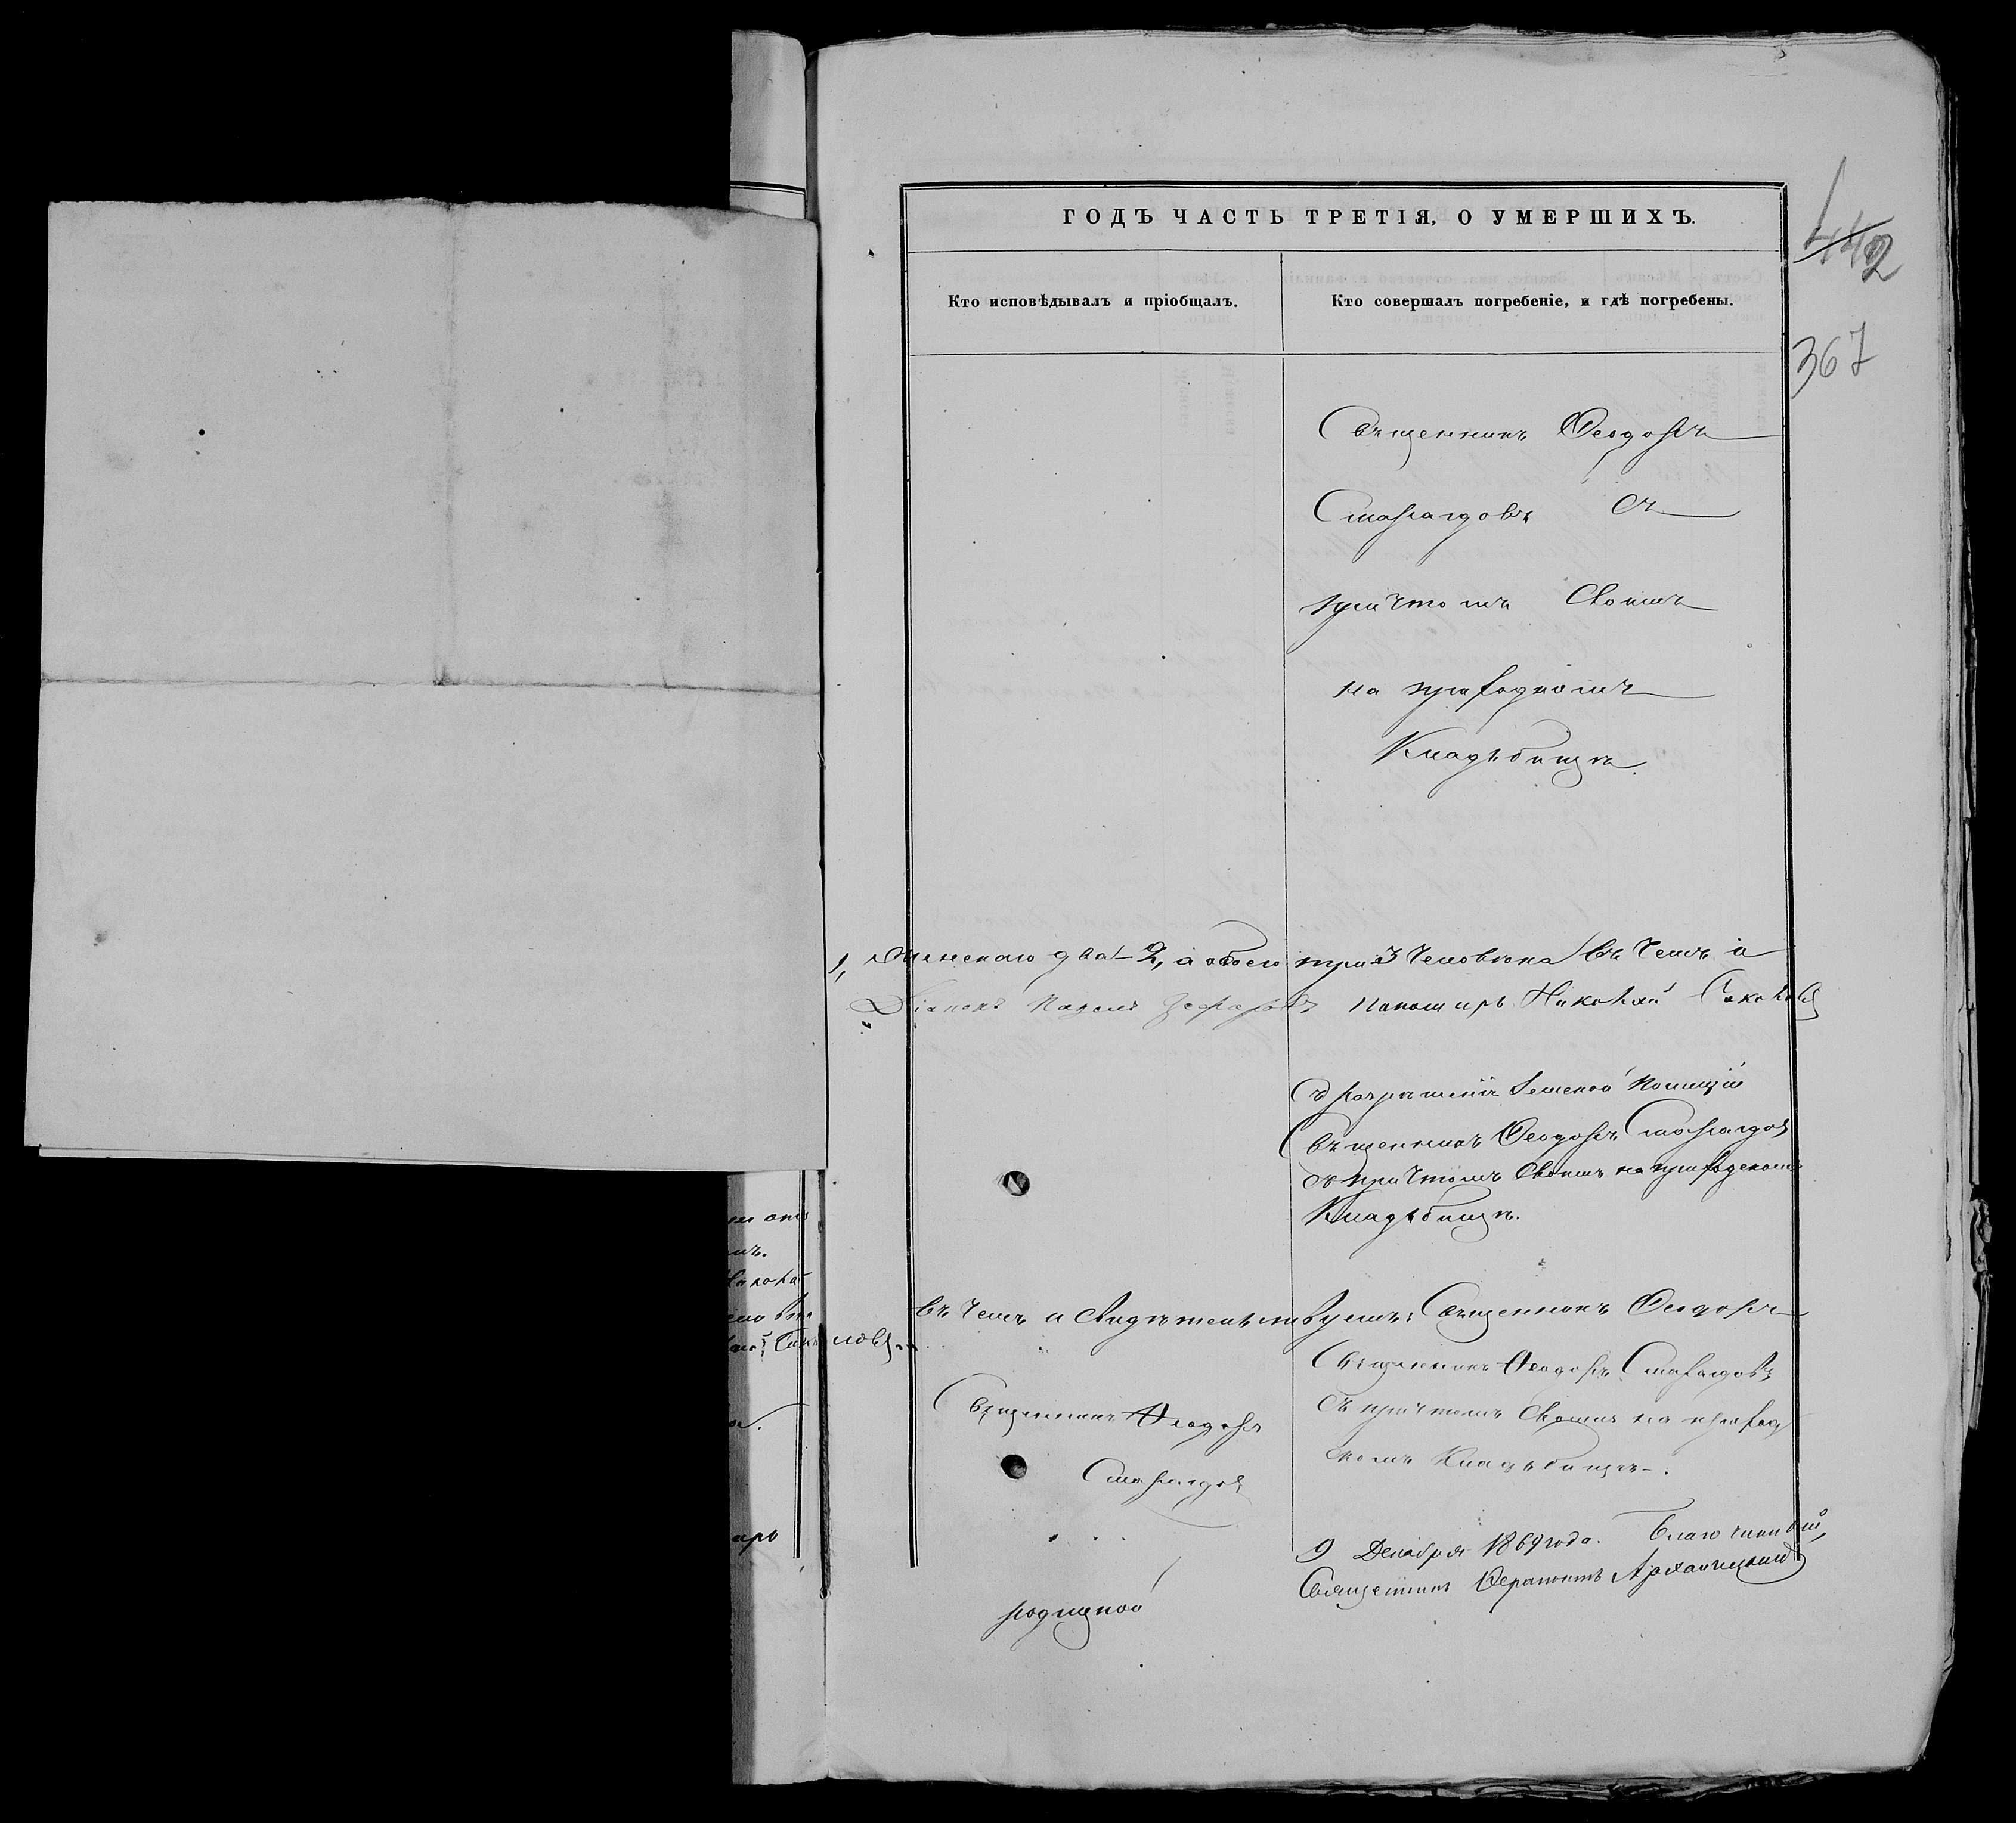 ГОДЪ ЧАСТЬ ТРЕТІЯ, О УМЕРШИХЪ.
442
Кто исповѣдывалъ и пріобщалъ.
Кто совершалъ погребеніе, и гдѣ погребены.
367
Священникъ Ѳеодоръ
Смарагдовъ съ
причтомъ своимъ
на приходскомъ
Кладьбищѣ.
1, Женскаго два 2, а обоего три 3 человѣка въ чемъ и
Діаконъ Павелъ Пономарь Николай Соколовъ
Съ разрѣшенія Земской Полиціи
Священникъ Ѳеодоръ Смарагдов
съ причтомъ своимъ на приходскомъ
Кладьбищѣ.
въ чемъ и свидѣтельствуемъ: Священникъ Ѳеодоръ
Священникъ Ѳеодоръ
Смарагдов
Священникъ Ѳеодоръ Смарагдовъ
съ причтомъ своимъ на приход
скомъ Кладьбищѣ.
9 Декабря 1869 года. Благочинный,
Священникъ Архангельскій